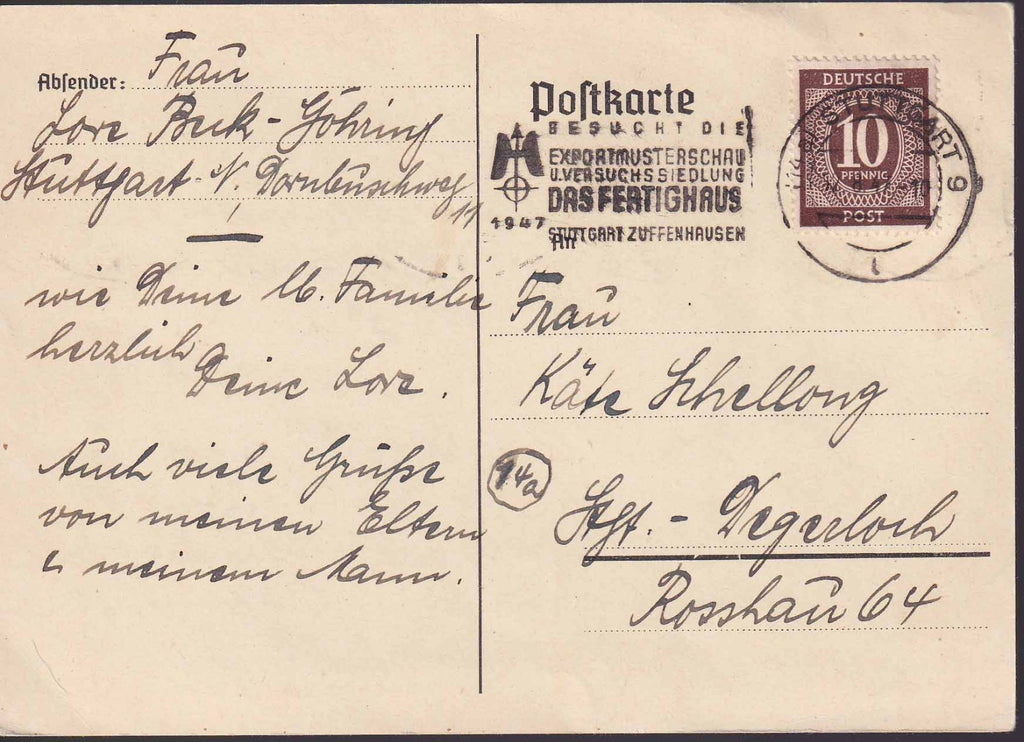 Absender: Frau
Lore Beck-Göhring
Stuttgart-N. Dornbuschweg
11
wie Deine lb. Familie
herzlich
Deine Lore.
Auch viele Grüße
von meinen Eltern
u. meinem Mann.
Postkarte
BESUCHT DIE
EXPORTMUSTERSCHAU
U. VERSUCHSSIEDLUNG
DAS FERTIGHAUS
1947
STUTTGART ZUFFENHAUSEN
An
DEUTSCHE
10
PFENNIG
POST
STUTTGART 9
Frau
Käte Schellong
14a
Stgt.-Degerloch
Rosshau 64